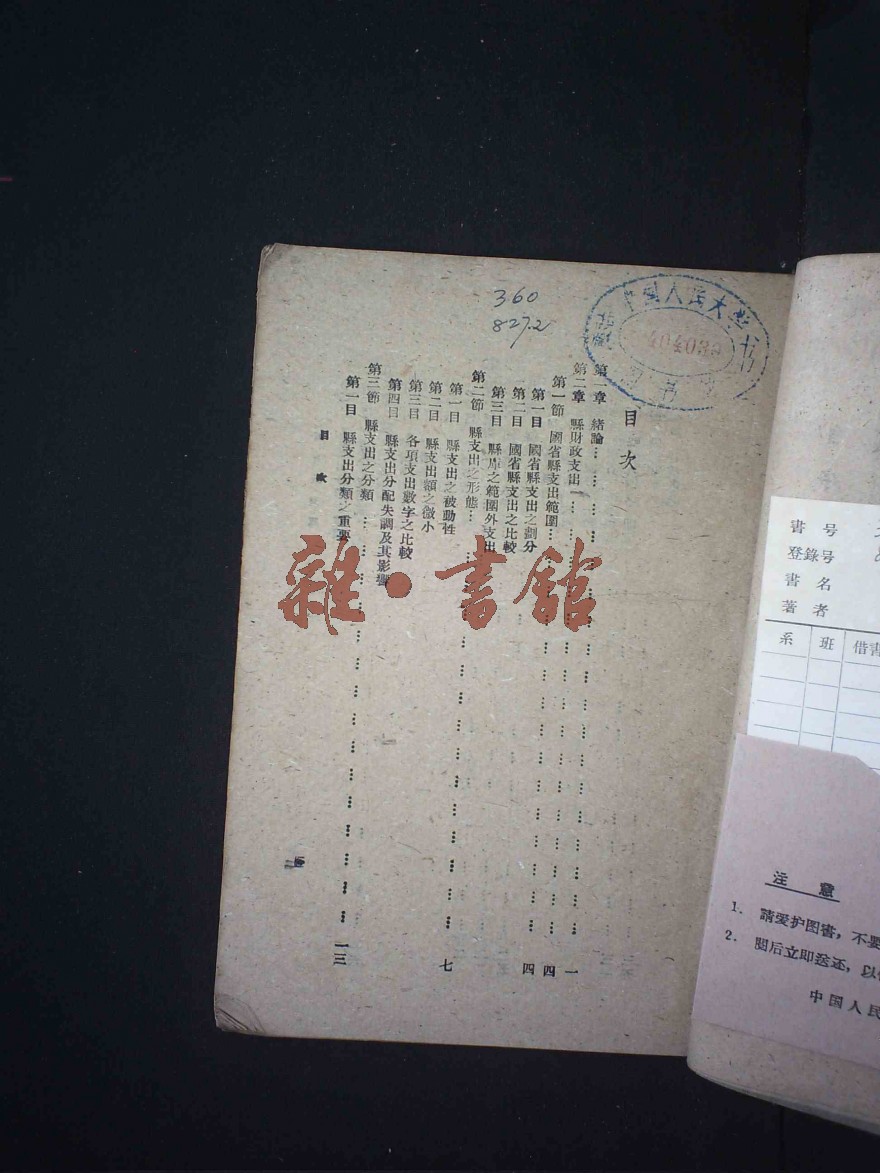 360
827.2
中国人民大学
404039
目次
第一章 緒論……………一
第二章 縣財政支出……………四
第一節 國省縣支出範圍……………四
第一目 國省縣支出之劃分
第二目 國省縣支出之比較
第三目 縣庫之範圍外支出
第二節 縣支出之形態……………七
第一目 縣支出之被動性
第二目 縣支出額之微小
第三目 各項支出數字之比較
第四目 縣支出分配失調及其影響
第三節 縣支出之分類……………一三
第一目 縣支出分類之重要
目次
雜·書舘
書号
登錄号
書名
著者
系 班 借書
注意
1. 請爱护图書，不要
2. 閱后立即送还，以
中国人民